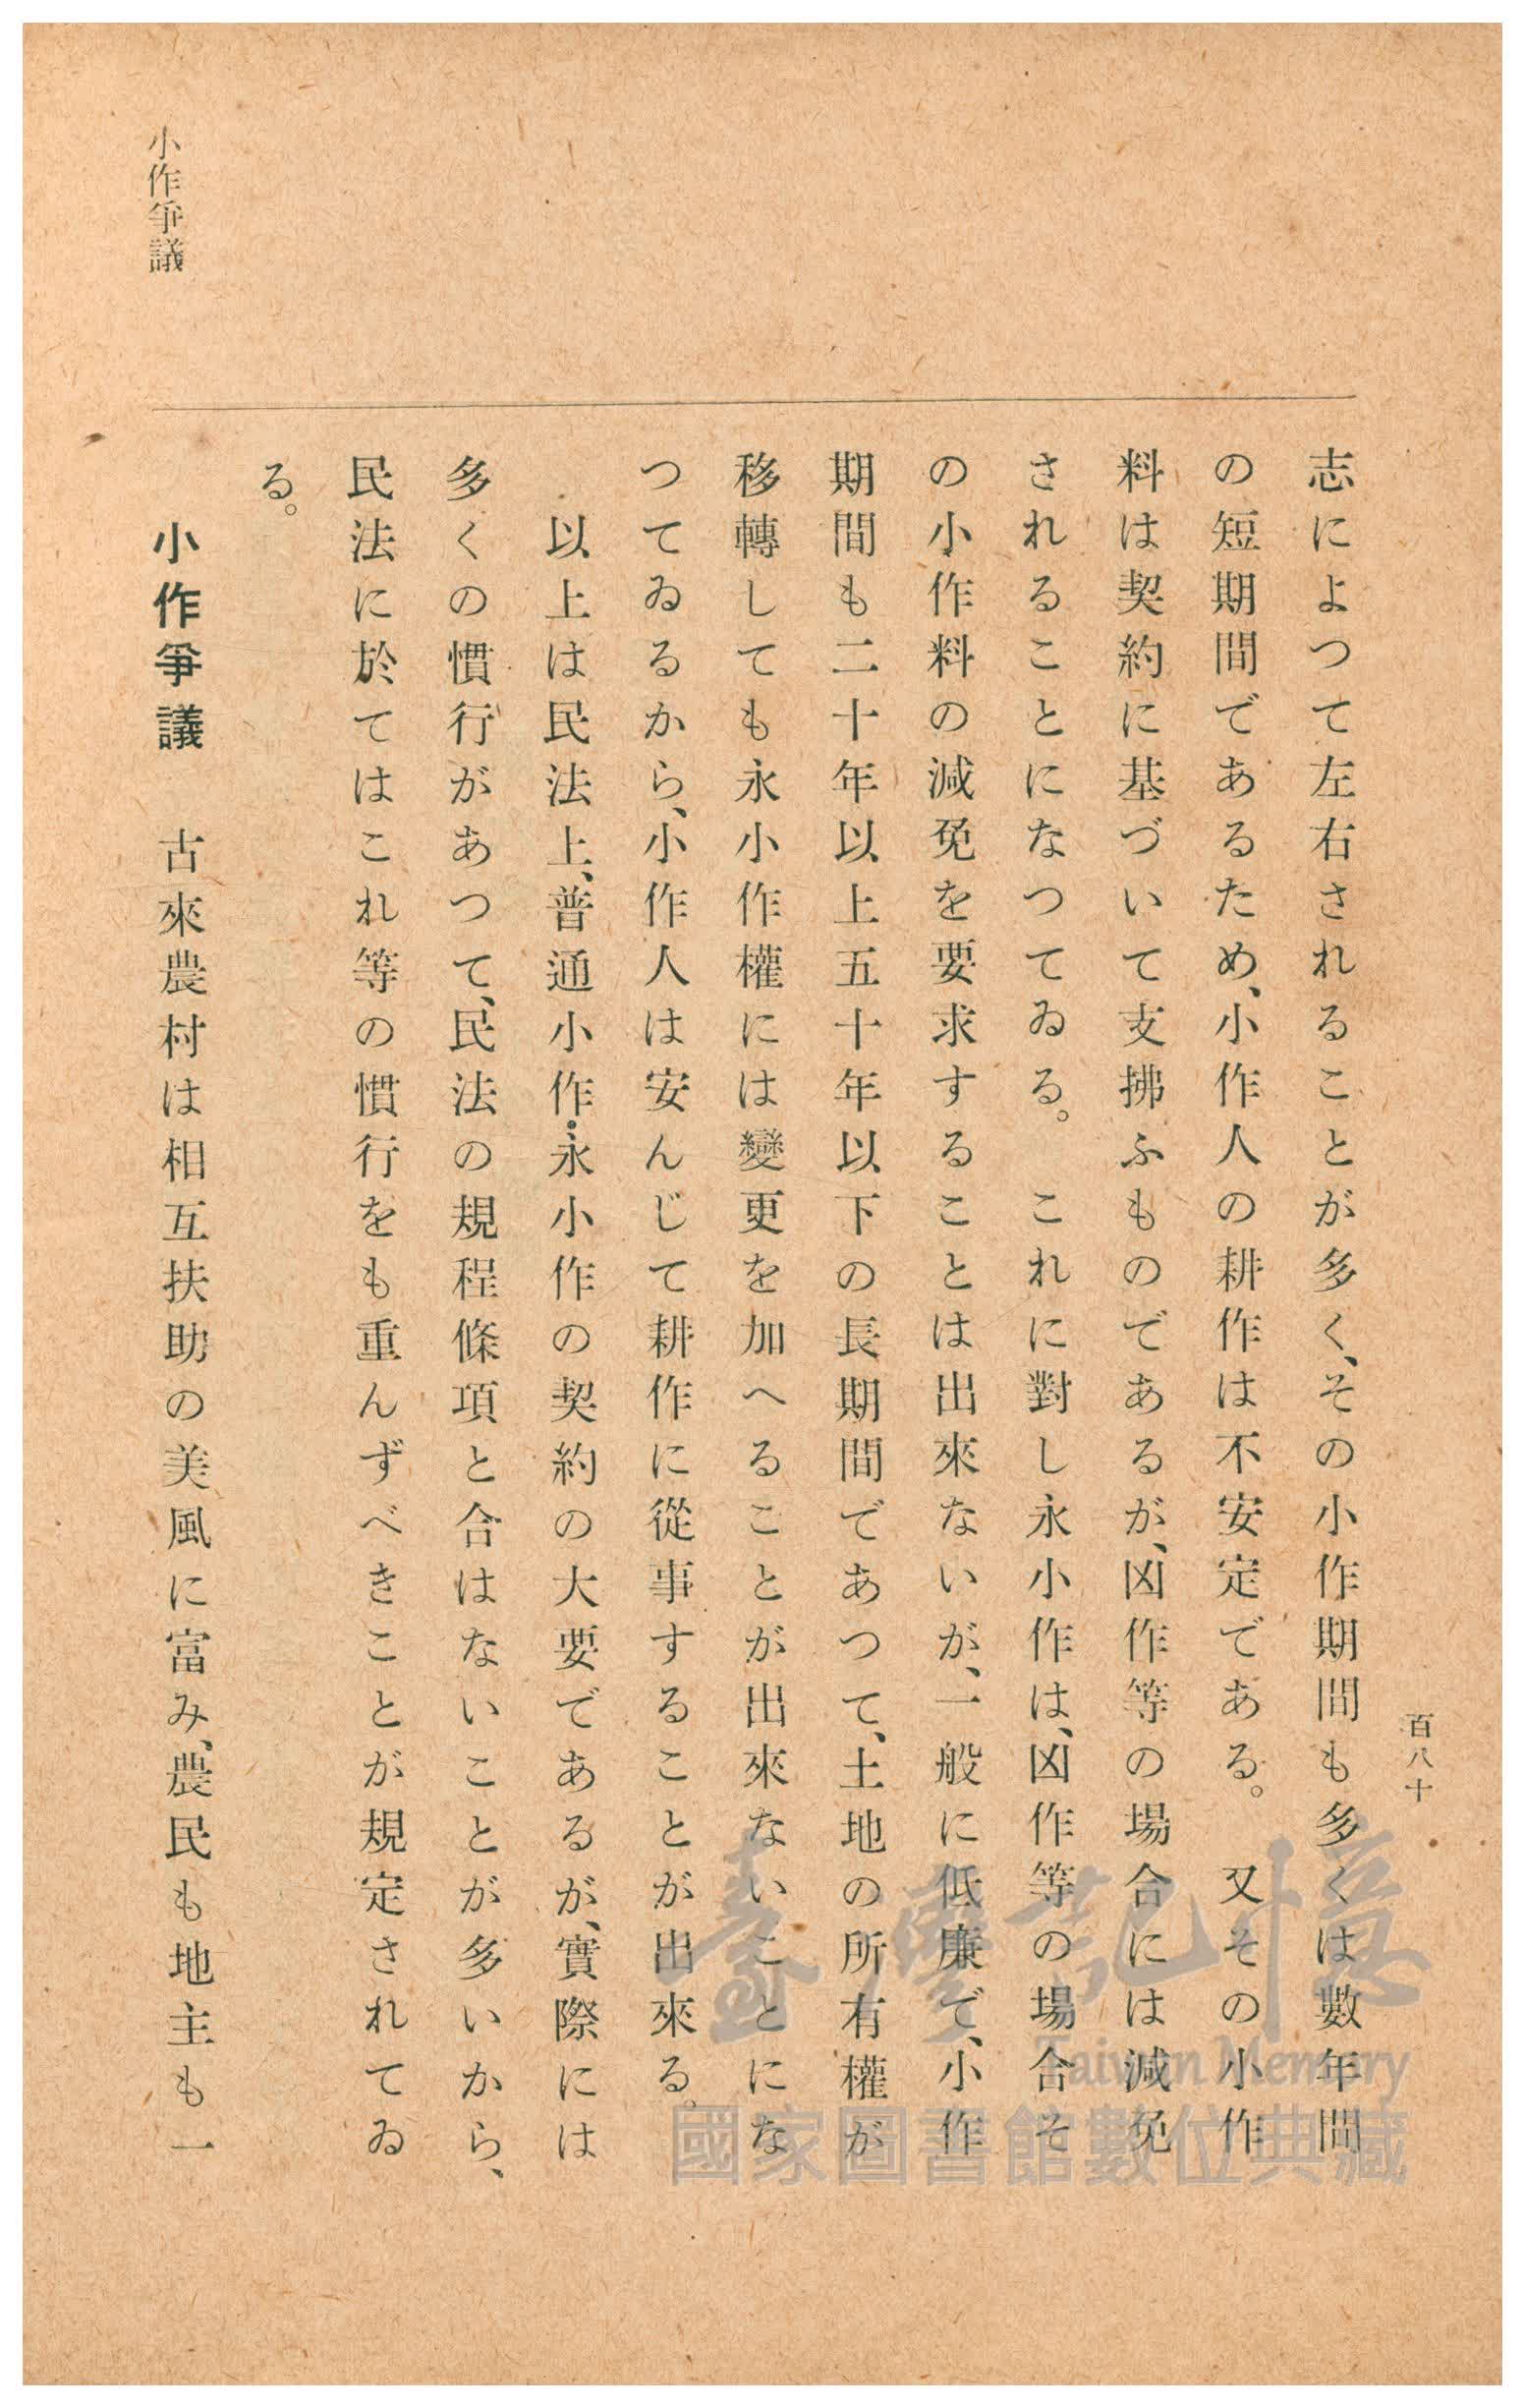 百八十
志によつて左右されることが多く、その小作期間も多くは數年間
の短期間であるため、小作人の耕作は不安定である。　又その小作
料は契約に基づいて支拂ふものであるが、凶作等の場合には減免
されることになつてゐる。　これに對し永小作は、凶作等の場合そ
の小作料の減免を要求することは出來ないが、一般に低廉で、小作
期間も二十年以上五十年以下の長期間であつて、土地の所有權が
移轉しても永小作權には變更を加へることが出來ないことにな
つてゐるから、小作人は安んじて耕作に從事することが出來る。
以上は民法上、普通小作・永小作の契約の大要であるが、實際には
多くの慣行があつて、民法の規程條項と合はないことが多いから、
民法に於てはこれ等の慣行をも重んずべきことが規定されてゐ
る。
小作爭議　古來農村は相互扶助の美風に富み、農民も地主も一
小作爭議
臺灣記憶
Taiwan Memory
國家圖書館數位典藏